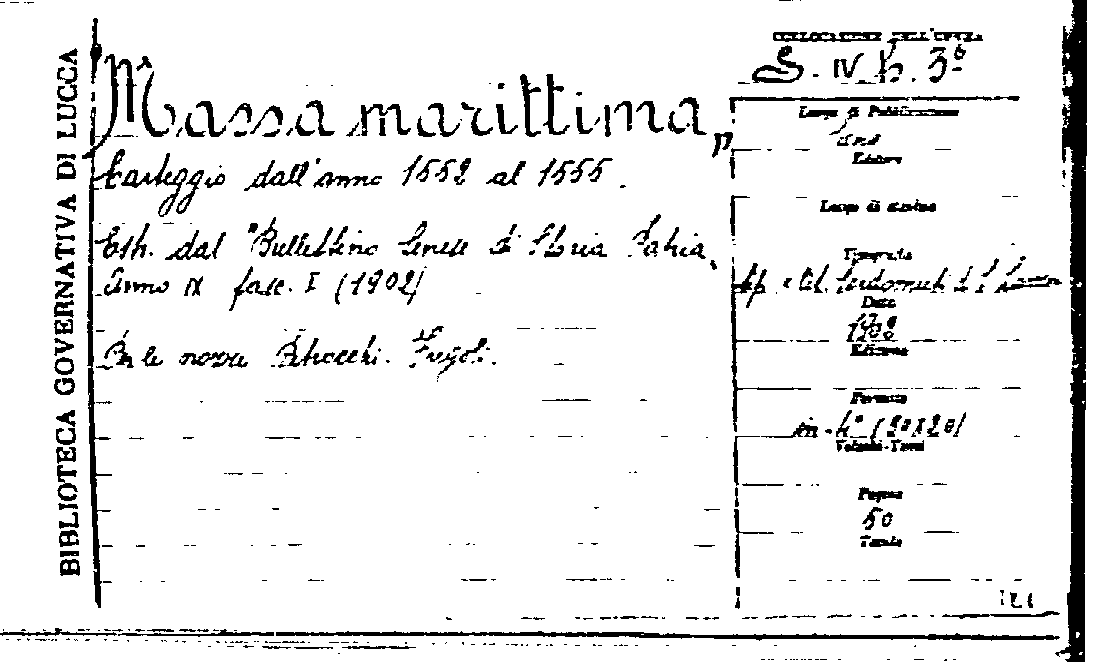 BIBLIOTECA GOVERNATIVA DI LUCCA
COLLOCAZIONE DELL'OPERA
S. IV b. 36
Massa marittima,,
Carteggio dall'anno 1552 al 1555.
Estr. dal "Bullettino Senese di Storia Patria,
Anno IX fasc. I (1902)
Luogo di Pubblicazione
Siena
Editore
Luogo di stampa
Tipografia
Tip. e Lit. Sordomuti di
Data
Edizione
Formato
in-4° (20x20)
Volumi-Tomi
Pagine
50
Tavole